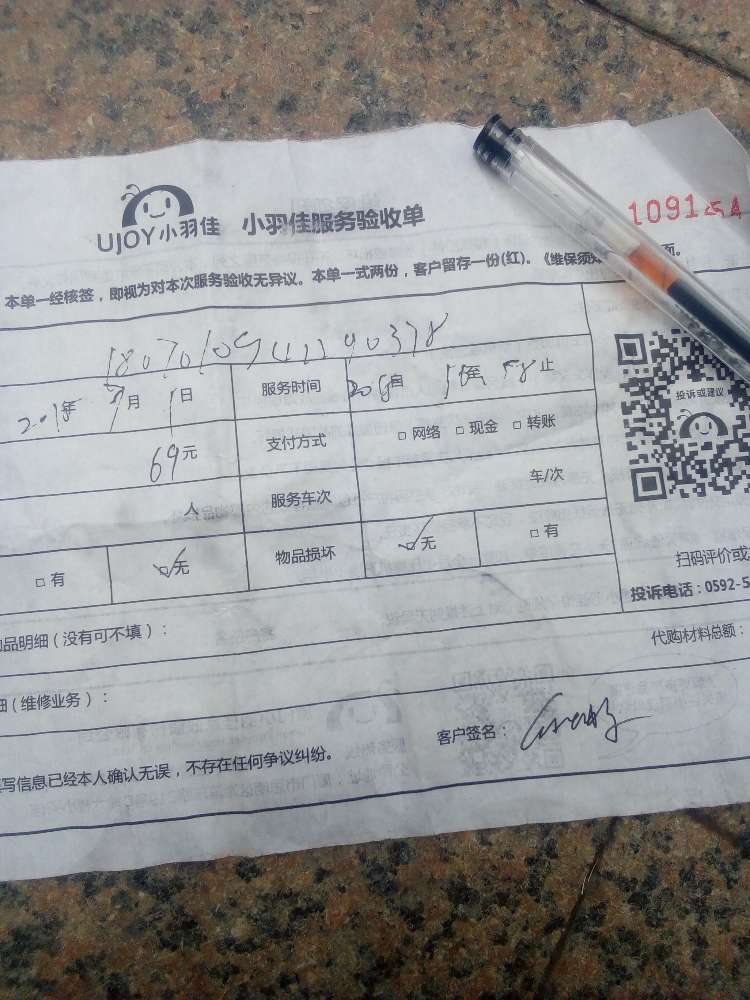 UJOY小羽佳 小羽佳服务验收单
1091
本单一经核签，即视为对本次服务验收无异议。本单一式两份，客户留存一份(红)。《维保须 面。
年 7月 1日 服务时间 自 止
69元 支付方式 □ 网络 □ 现金 □ 转账
投诉或建议
人 服务车次 车/次
□ 有 □ 无 物品损坏 □ 无 □ 有
扫码评价或
投诉电话：0592-5
品明细（没有可不填）：
代购材料总额：
细（维修业务）：
客户签名：
写信息已经本人确认无误，不存在任何争议纠纷。